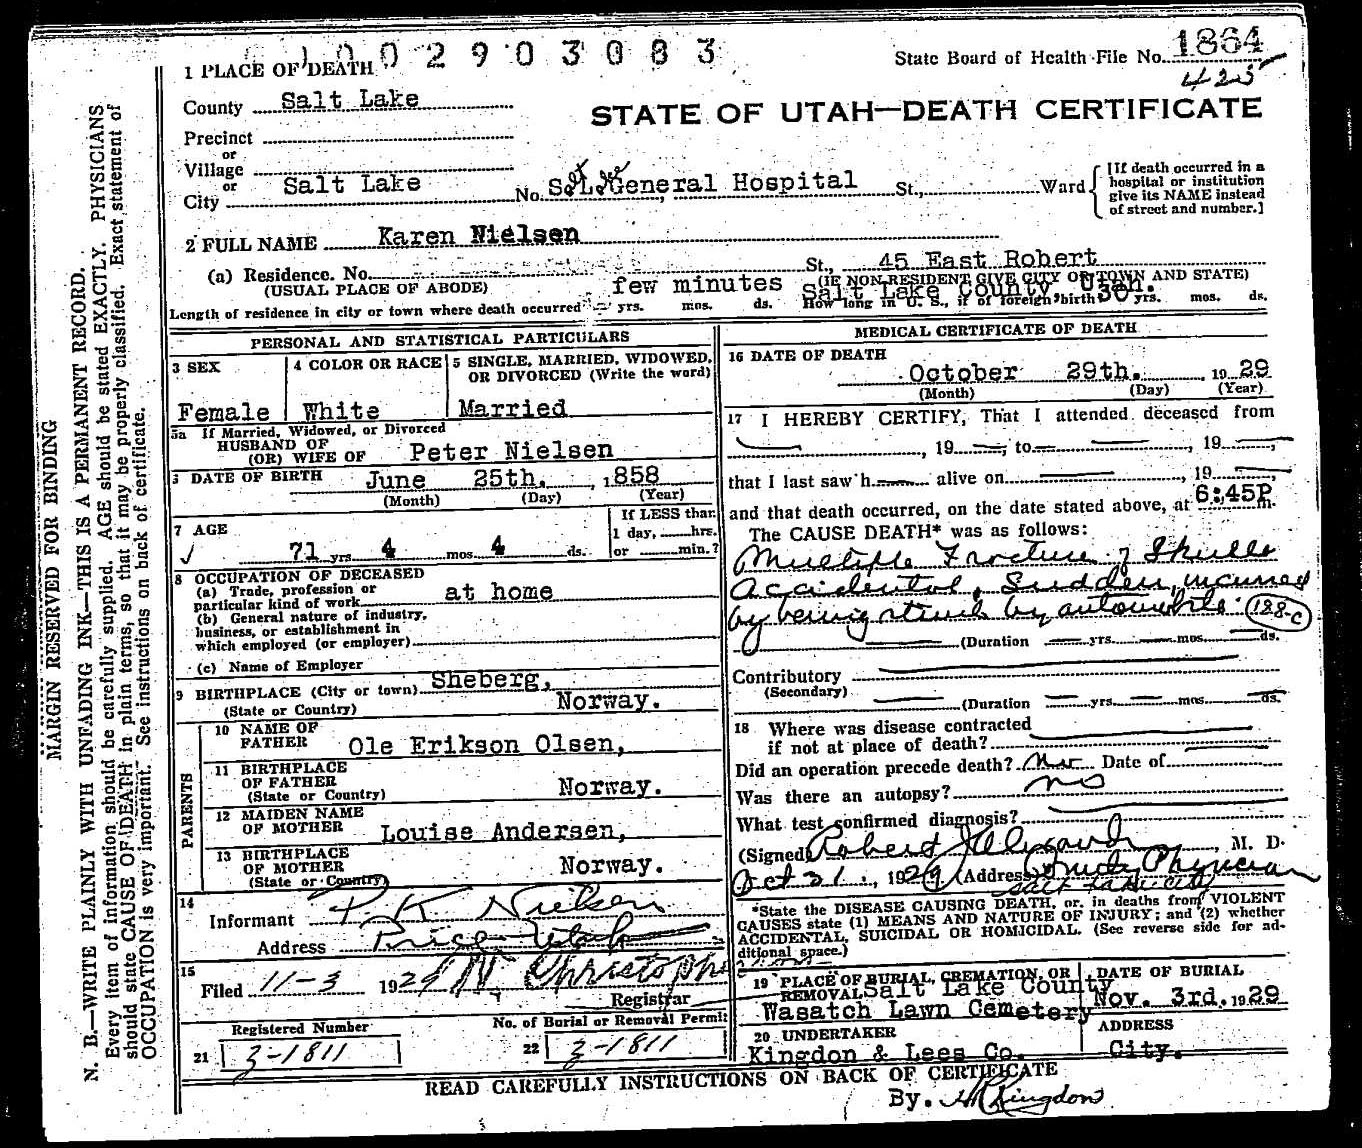 1002903083
State Board of Health File No. 1864
425
1 PLACE OF DEATH
County Salt Lake
STATE OF UTAH—DEATH CERTIFICATE
Precinct
or
Village
or
City Salt Lake No. S. L. General Hospital St., Ward
[If death occurred in a hospital or institution give its NAME instead of street and number.]
2 FULL NAME Karen Nielsen
(a) Residence. No. St., 45 East Robert
(USUAL PLACE OF ABODE) (IF NON-RESIDENT GIVE CITY OR TOWN AND STATE)
Salt Lake County, Utah.
Length of residence in city or town where death occurred few minutes yrs. mos. ds. How long in U. S., if of foreign birth 50 yrs. mos. ds.
PERSONAL AND STATISTICAL PARTICULARS
3 SEX
Female
4 COLOR OR RACE
White
5 SINGLE, MARRIED, WIDOWED,
OR DIVORCED (Write the word)
Married
5a If Married, Widowed, or Divorced
HUSBAND OF
(OR) WIFE OF Peter Nielsen
DATE OF BIRTH June 25th. , 1858
(Month) (Day) (Year)
7 AGE
71 yrs 4 mos 4 ds.
If LESS than
1 day, hrs.
or min.?
8 OCCUPATION OF DECEASED
(a) Trade, profession or
particular kind of work at home
(b) General nature of industry,
business, or establishment in
which employed (or employer)
(c) Name of Employer
9 BIRTHPLACE (City or town) Sheberg,
(State or Country) Norway.
PARENTS
10 NAME OF
FATHER Ole Erikson Olsen,
11 BIRTHPLACE
OF FATHER
(State or Country) Norway.
12 MAIDEN NAME
OF MOTHER Louise Andersen,
13 BIRTHPLACE
OF MOTHER
(State or Country) Norway.
14
Informant P K Nielsen
Address Price Utah
15
Filed 11-3 1929 Christophe
Registrar
Registered Number
21 3-1811
No. of Burial or Removal Permit
22 3-1811
MEDICAL CERTIFICATE OF DEATH
16 DATE OF DEATH
October 29th. , 1929
(Month) (Day) (Year)
17 I HEREBY CERTIFY, That I attended deceased from
, 19 , to , 19
that I last saw h alive on , 19
and that death occurred, on the date stated above, at 6:45P m.
The CAUSE DEATH* was as follows:
Multiple Fracture of Skull
Accidental, Sudden, incurred
by being struck by automobile. 188-c
(Duration yrs. mos. ds.
Contributory
(Secondary)
(Duration yrs. mos. ds.
18 Where was disease contracted
if not at place of death?
Did an operation precede death? No Date of
Was there an autopsy? no
What test confirmed diagnosis?
(Signed Robert , M. D.
Oct 31. , 1929 (Address) County Physician
Salt Lake City
*State the DISEASE CAUSING DEATH, or, in deaths from VIOLENT
CAUSES state (1) MEANS AND NATURE OF INJURY; and (2) whether
ACCIDENTAL, SUICIDAL OR HOMICIDAL. (See reverse side for ad-
ditional space.)
19 PLACE OF BURIAL, CREMATION, OR
REMOVAL Salt Lake County
Wasatch Lawn Cemetery
DATE OF BURIAL
Nov. 3rd. 1929
20 UNDERTAKER
Kingdon & Lees Co.
ADDRESS
City.
READ CAREFULLY INSTRUCTIONS ON BACK OF CERTIFICATE
By. Kingdon
MARGIN RESERVED FOR BINDING
N. B.—WRITE PLAINLY WITH UNFADING INK—THIS IS A PERMANENT RECORD.
Every item of information should be carefully supplied. AGE should be stated EXACTLY. PHYSICIANS
should state CAUSE OF DEATH in plain terms, so that it may be properly classified. Exact statement of
OCCUPATION is very important. See instructions on back of certificate.